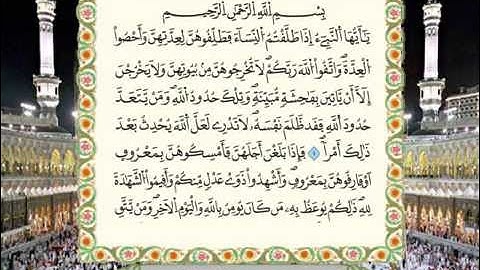 بِسْمِ ٱللَّهِ ٱلرَّحْمَٰنِ ٱلرَّحِيمِ
يَٰٓأَيُّهَا ٱلنَّبِىُّ إِذَا طَلَّقْتُمُ ٱلنِّسَآءَ فَطَلِّقُوهُنَّ لِعِدَّتِهِنَّ وَأَحْصُوا۟
ٱلْعِدَّةَ وَٱتَّقُوا۟ ٱللَّهَ رَبَّكُمْ لَا تُخْرِجُوهُنَّ مِنۢ بُيُوتِهِنَّ وَلَا يَخْرُجْنَ
إِلَّآ أَن يَأْتِينَ بِفَٰحِشَةٍ مُّبَيِّنَةٍ وَتِلْكَ حُدُودُ ٱللَّهِ وَمَن يَتَعَدَّ
حُدُودَ ٱللَّهِ فَقَدْ ظَلَمَ نَفْسَهُۥ لَا تَدْرِى لَعَلَّ ٱللَّهَ يُحْدِثُ بَعْدَ
ذَٰلِكَ أَمْرًا ١ فَإِذَا بَلَغْنَ أَجَلَهُنَّ فَأَمْسِكُوهُنَّ بِمَعْرُوفٍ
أَوْ فَارِقُوهُنَّ بِمَعْرُوفٍ وَأَشْهِدُوا۟ ذَوَىْ عَدْلٍ مِّنكُمْ وَأَقِيمُوا۟ ٱلشَّهَٰدَةَ
لِلَّهِ ذَٰلِكُمْ يُوعَظُ بِهِۦ مَن كَانَ يُؤْمِنُ بِٱللَّهِ وَٱلْيَوْمِ ٱلْءَاخِرِ وَمَن يَتَّقِ